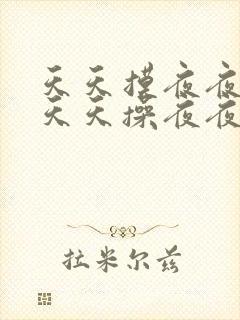 天天摸夜夜
天天操夜夜
拉米尔兹